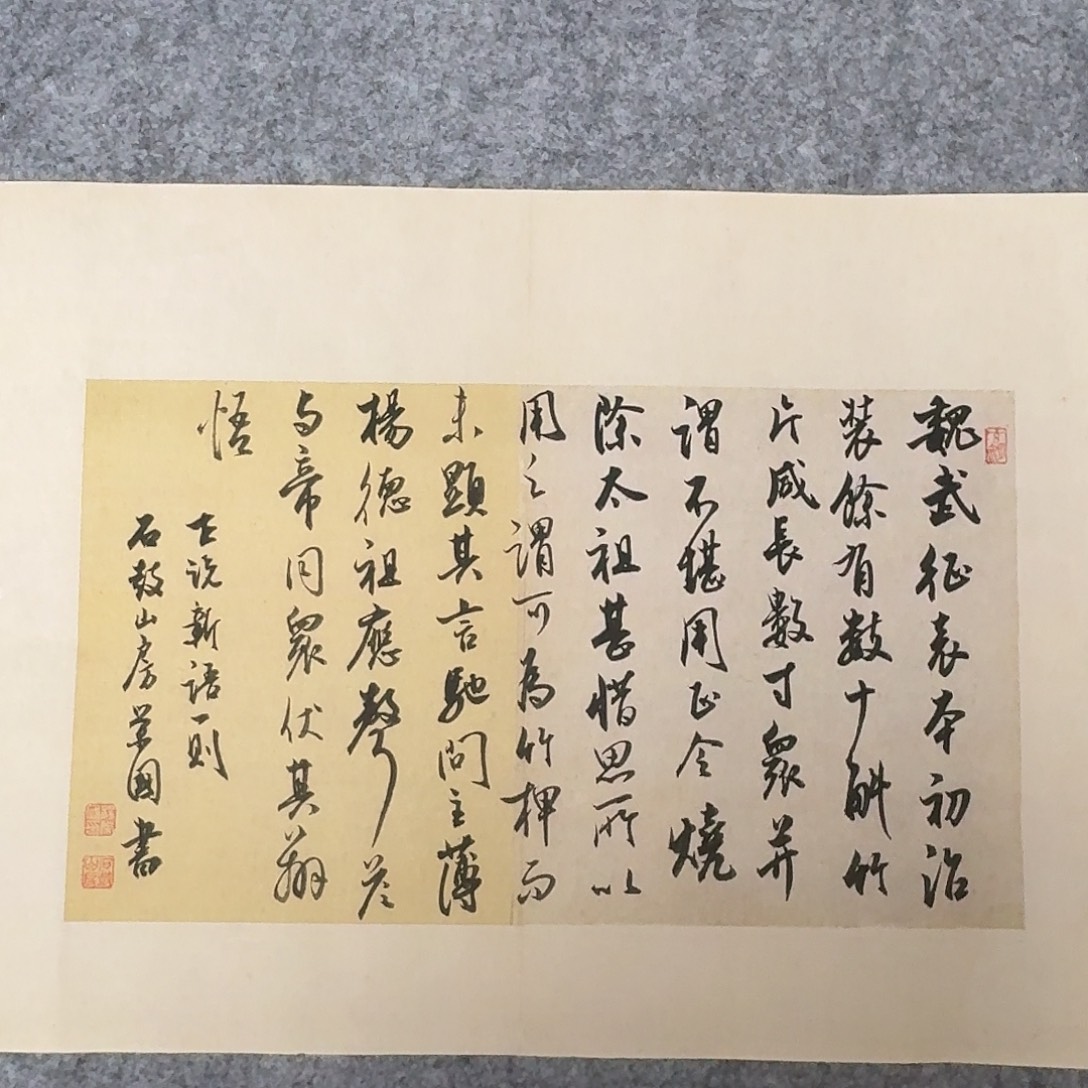 魏武征袁本初治
装餘有數十斛竹
片咸長數寸衆并
謂不堪用正令燒
除太祖甚惜思所以
用之謂可為竹椑而
未顯其言馳問主薄
楊德祖應聲答
与帝同衆伏其辯
悟
世説新語一則
石鼓山房 國書